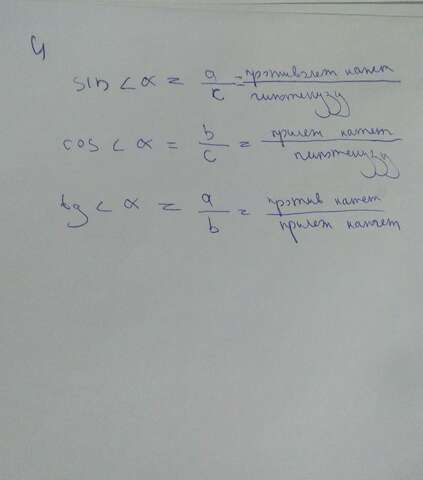 4
sin < α = a/c = противолеж катет/гипотенузу
cos < α = b/c = прилеж катет/гипотенузу
tg < α = a/b = против катет/прилеж катет